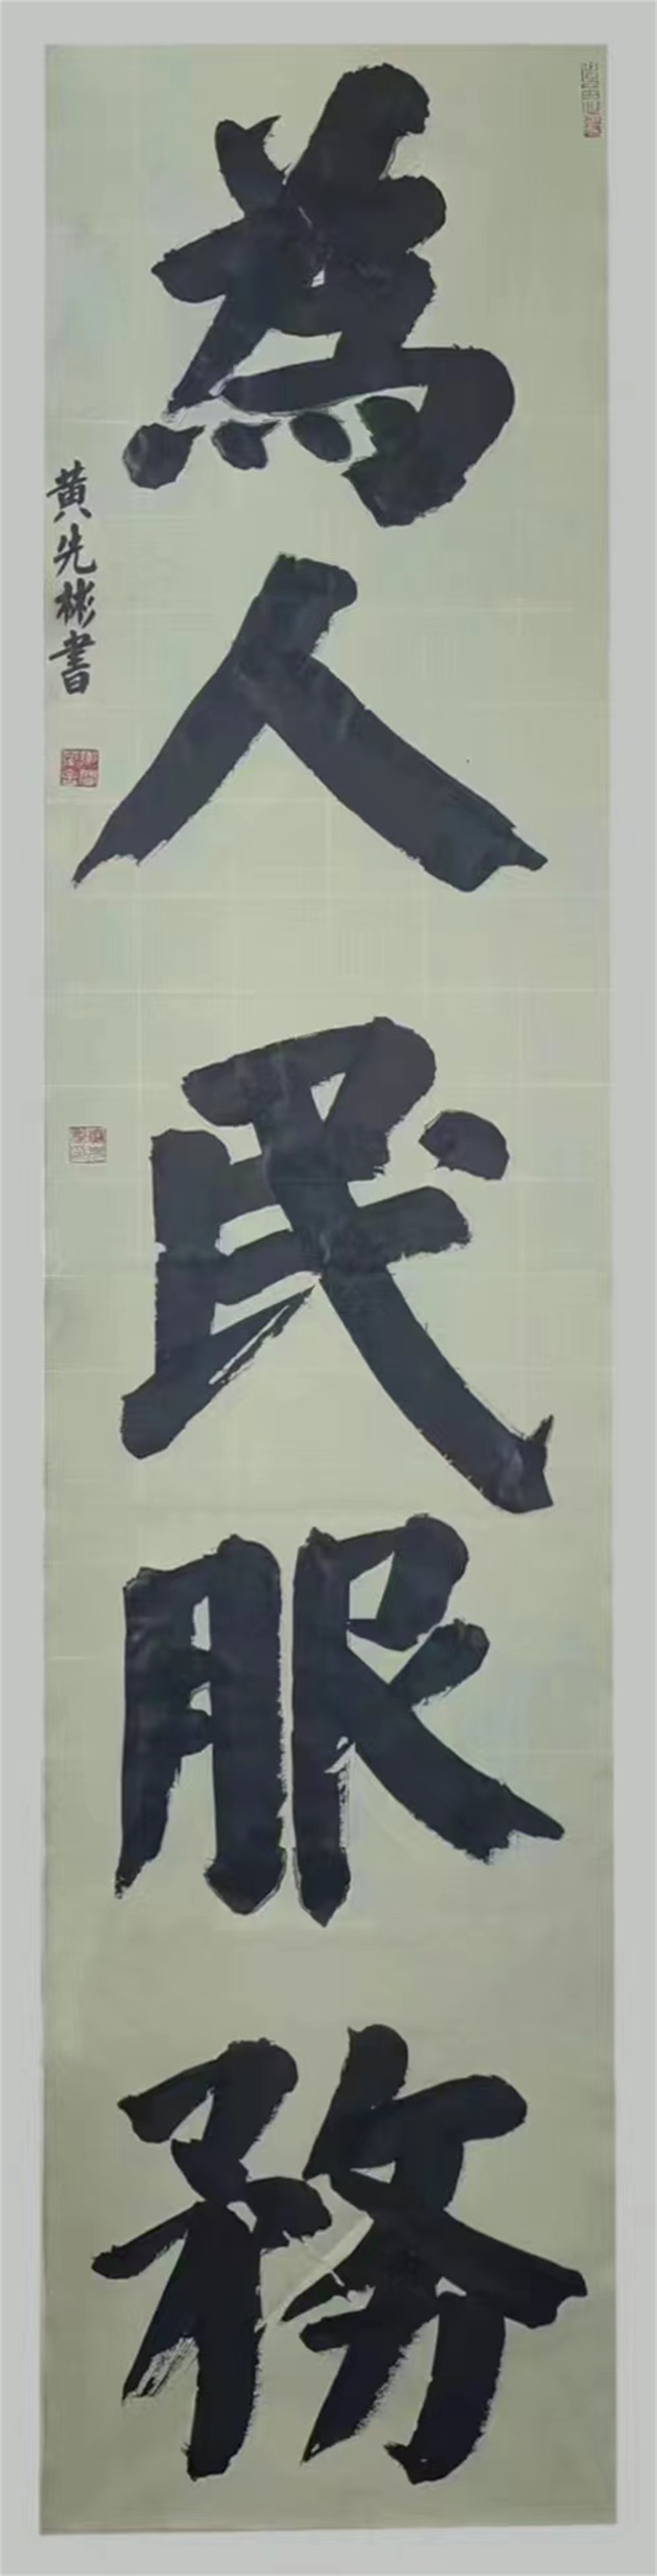 為人民服務
黄先彬書